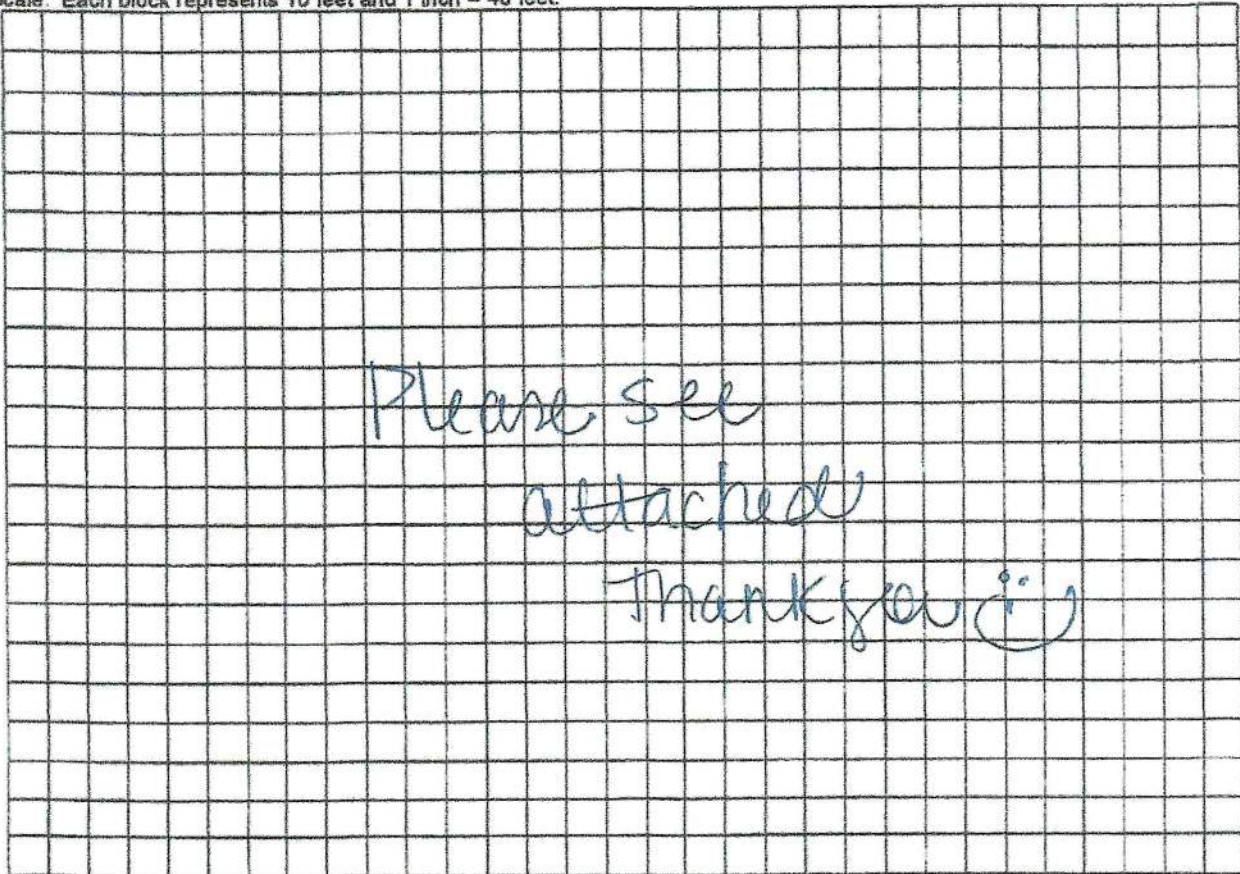 Scale: Each block represents 10 feet and 1 inch = 40 feet.
Please see
attached
Thank you